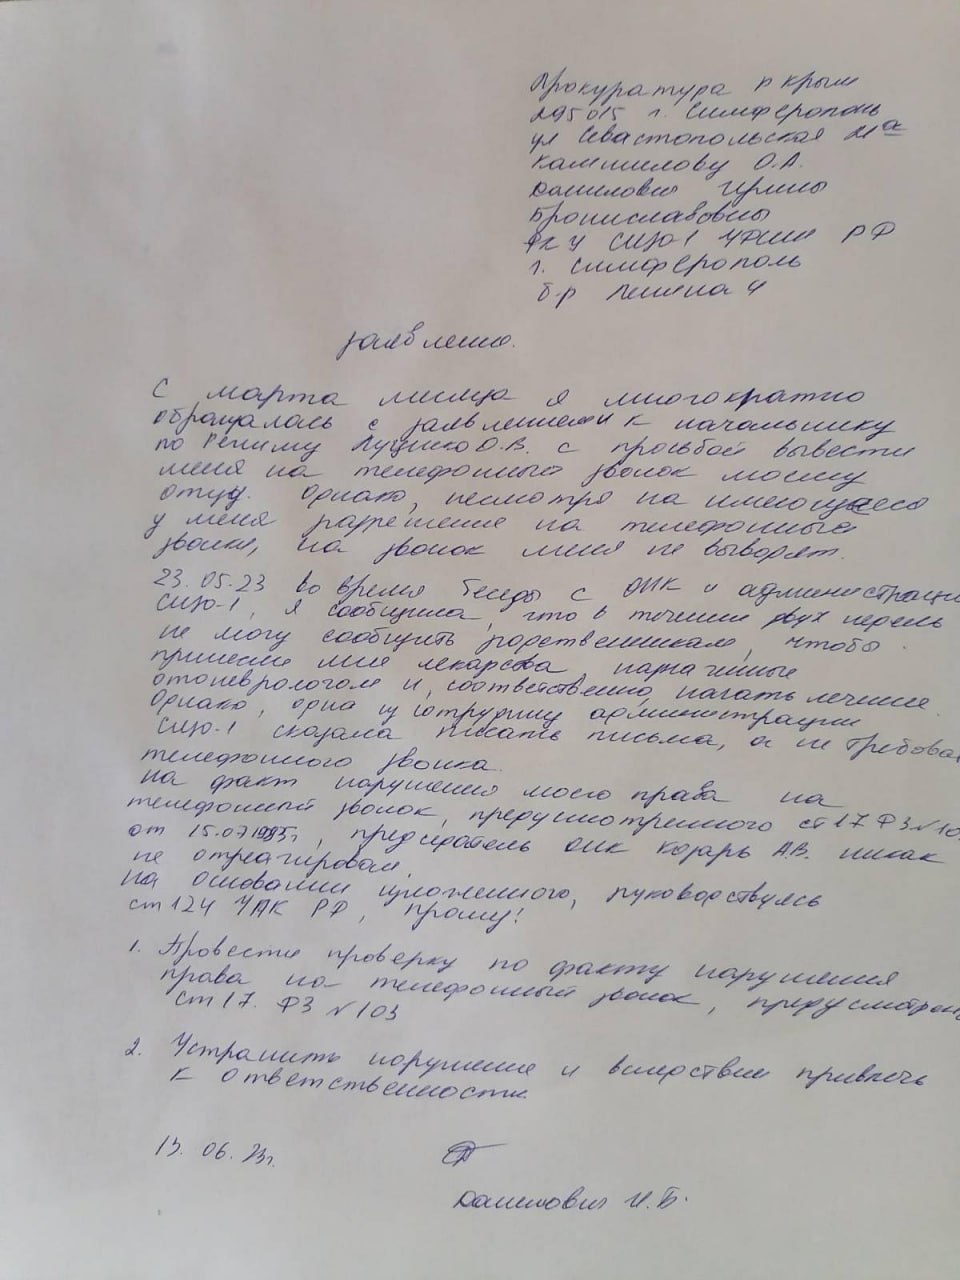 Прокуратура р Крым
295015 г. Симферополь
ул Севастопольская 21а
Камшилову О.А.
Данилович Ирины
Брониславовны
ФКУ СИЗО-1 УФСИН РФ
г. Симферополь
б-р Ленина 4
Заявление.
С марта месяца я многократно
обращалась с заявлением к начальнику
по Режиму О.В. с просьбой вывести
меня на телефонный звонок моему
отцу. Однако, несмотря на имеющееся
у меня разрешение на телефонные
звонки, на звонок меня не выводят.
23.05.23 во время беседы с ОНК и администрацие
СИЗО-1, я сообщила, что в течении двух недель
не могу сообщить родственникам, чтобы
принесли мне лекарства назначеные
отоневрологом и, соответственно, начать лечение.
Однако, одна из сотрудниц администрации
СИЗО-1 сказала писать письма, а не требова
телефонного звонка.
На факт нарушения моего права на
телефонный звонок, предусмотренного ст 17 ФЗ №10
от 15.07.1995г, председатель ОНК Козарь А.В. никак
не отреагировал.
На основании изложенного, руководствуясь
ст 124 УПК РФ, прошу!
1. Провести проверку по факту нарушения
права на телефонный звонок, предусмотрен
ст 17. ФЗ №103
2. Устранить нарушение и виновных привлечь
к ответственности.
13.06.23г.
Данилович И.Б.